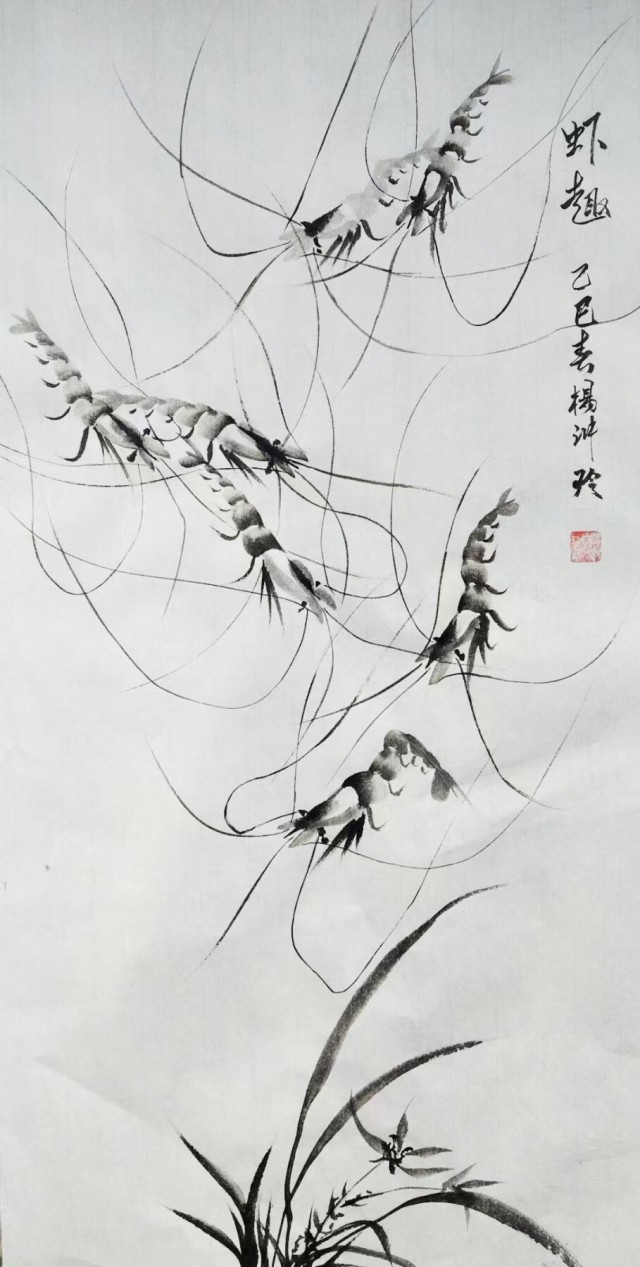 虾趣
乙巳春杨冲玲